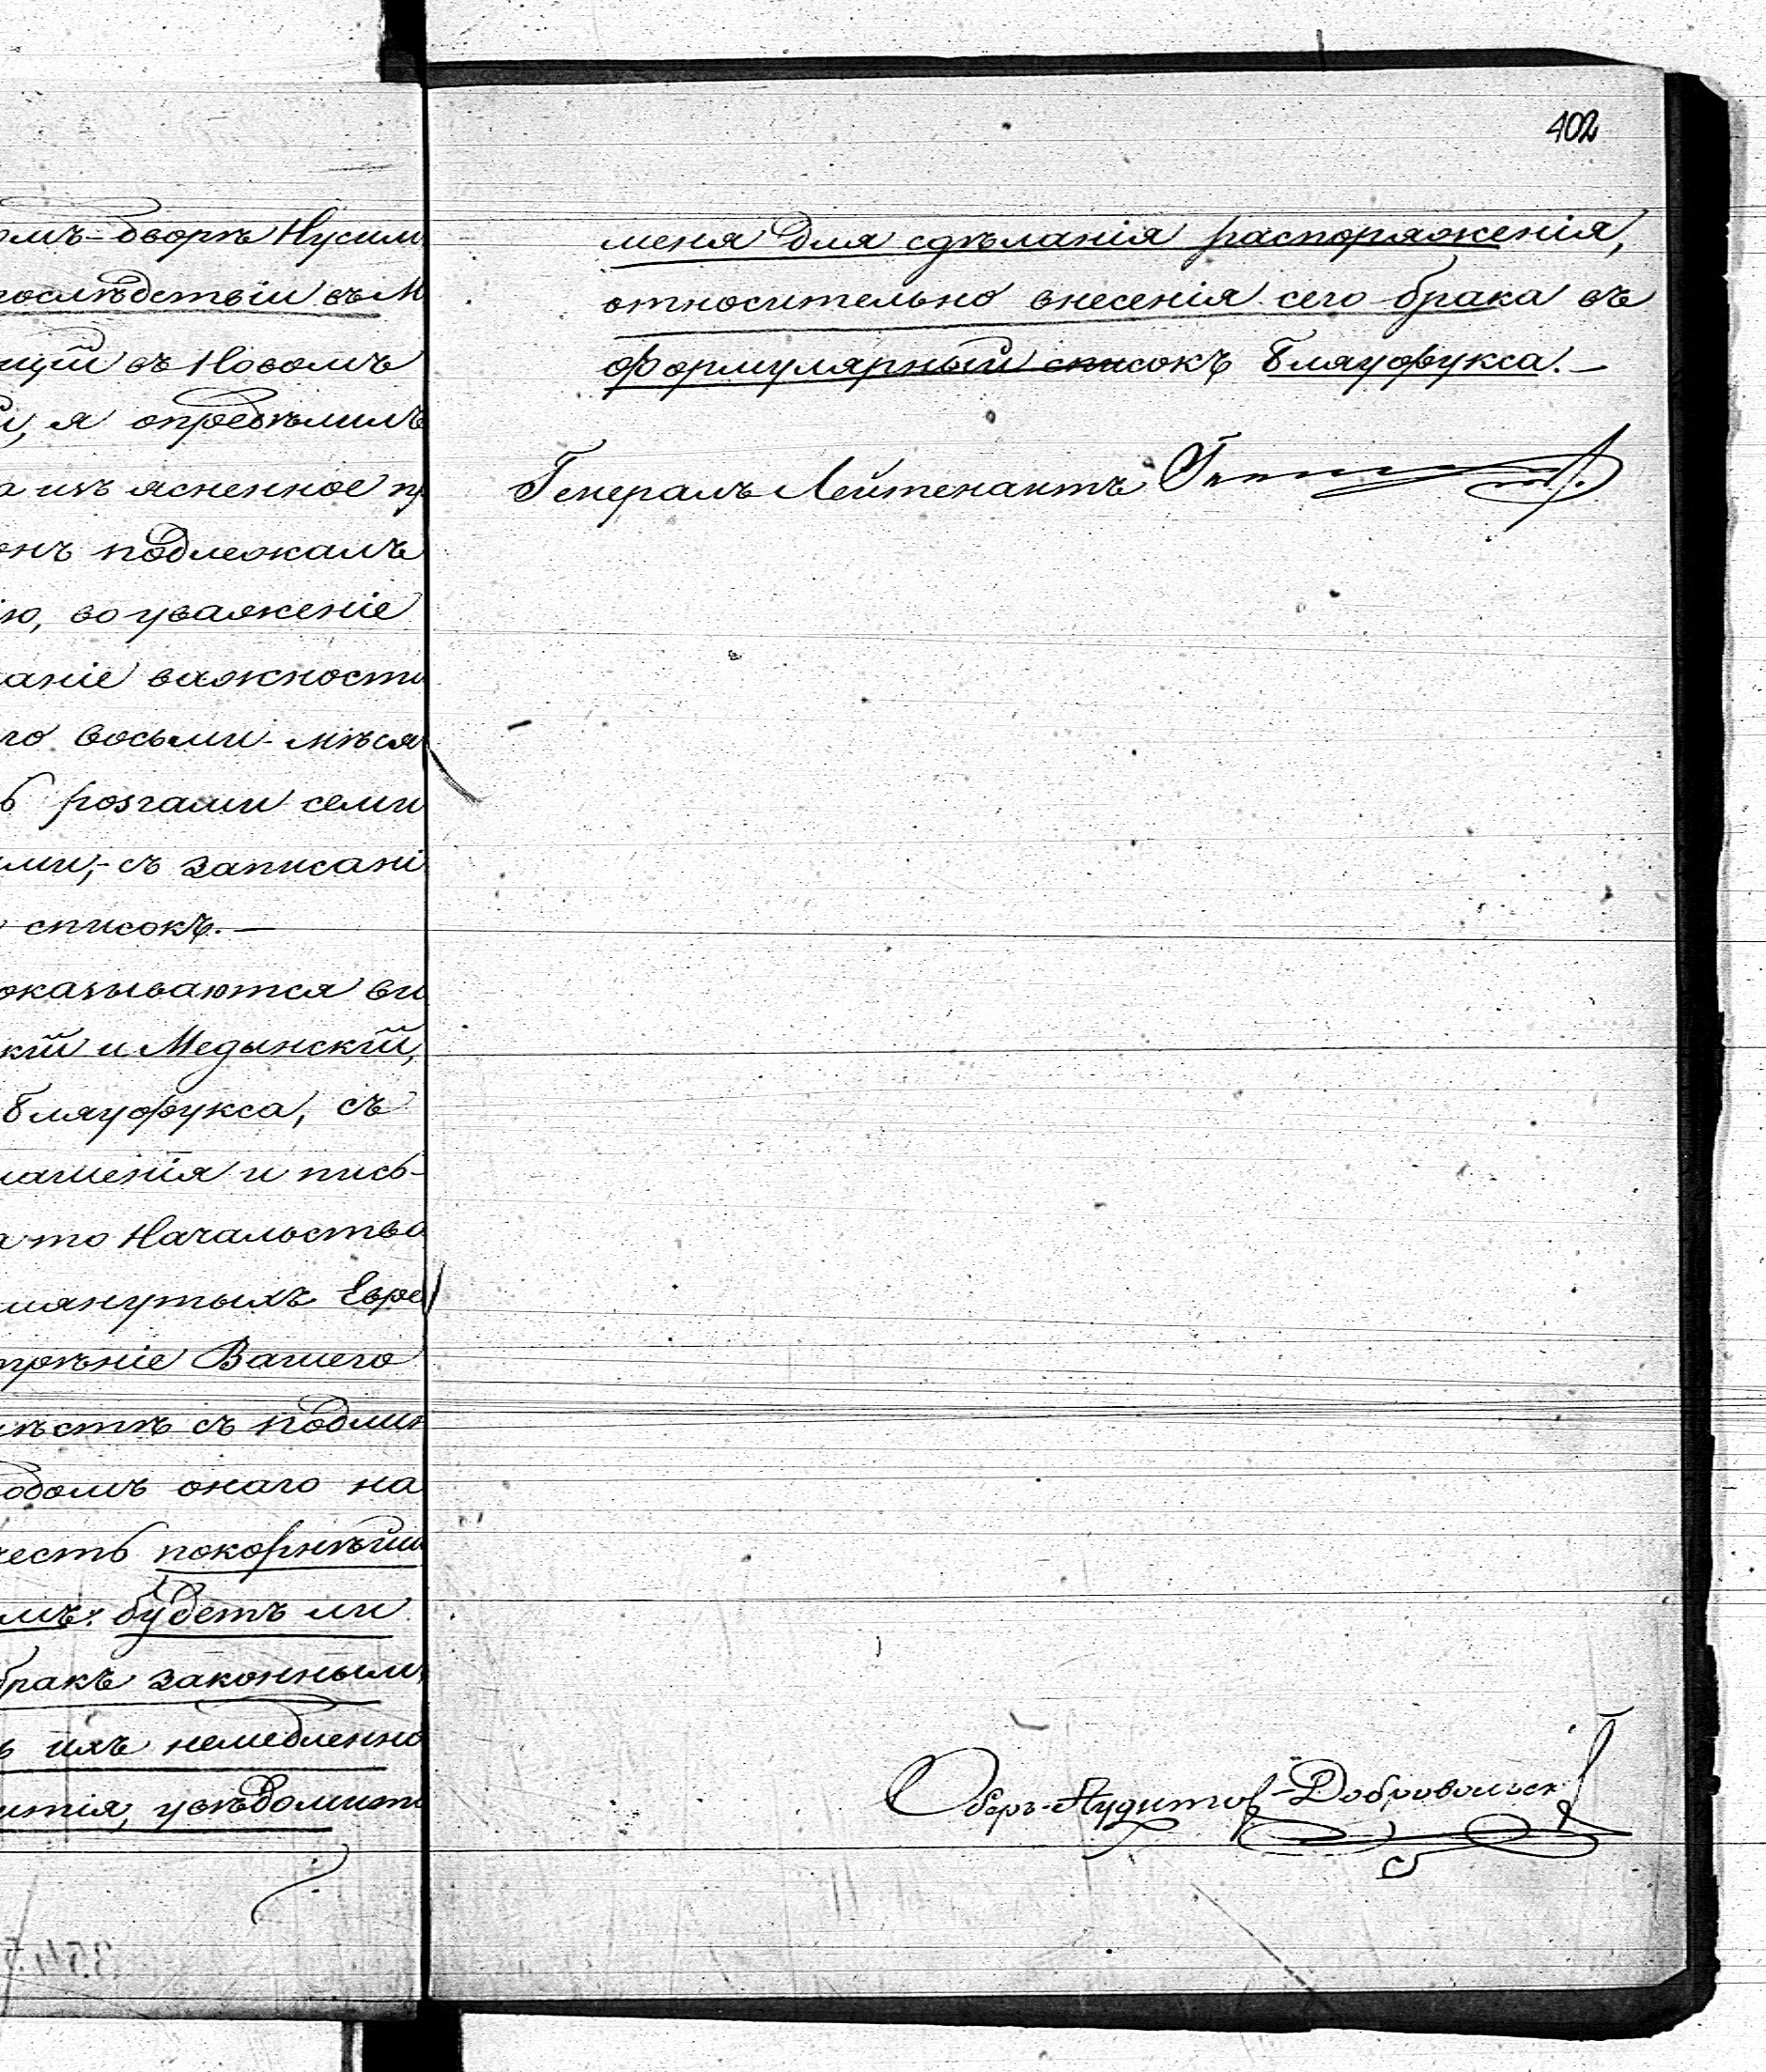 омъ-дворѣ Нусим
послѣдствіи въ М
ущій въ Новомъ
и, я опредѣлилъ
а изъясненное пр
онъ подлежалъ
ію, во уваженіе
аніе важности
го восьми-мѣся
ь розгами семи
ми,- съ записані
списокъ.—
оказываются ви
кій и Медынскій,
Бляуфукса, съ
лашенія и пись-
а то Начальство
мянутыхъ Евре
трѣніе Вашего
мѣстѣ съ подлин
одомъ онаго на
честь покорнѣйш
мъ: будетъ ли
бракъ законнымъ,
ь ихъ немедленно
итія, увѣдомить
402
меня для сдѣланія распоряженія,
относительно внесенія сего брака въ
формулярный списокъ Бляуфукса.—
Генералъ Лейтенантъ
Оберъ-Аудиторъ Добровольск